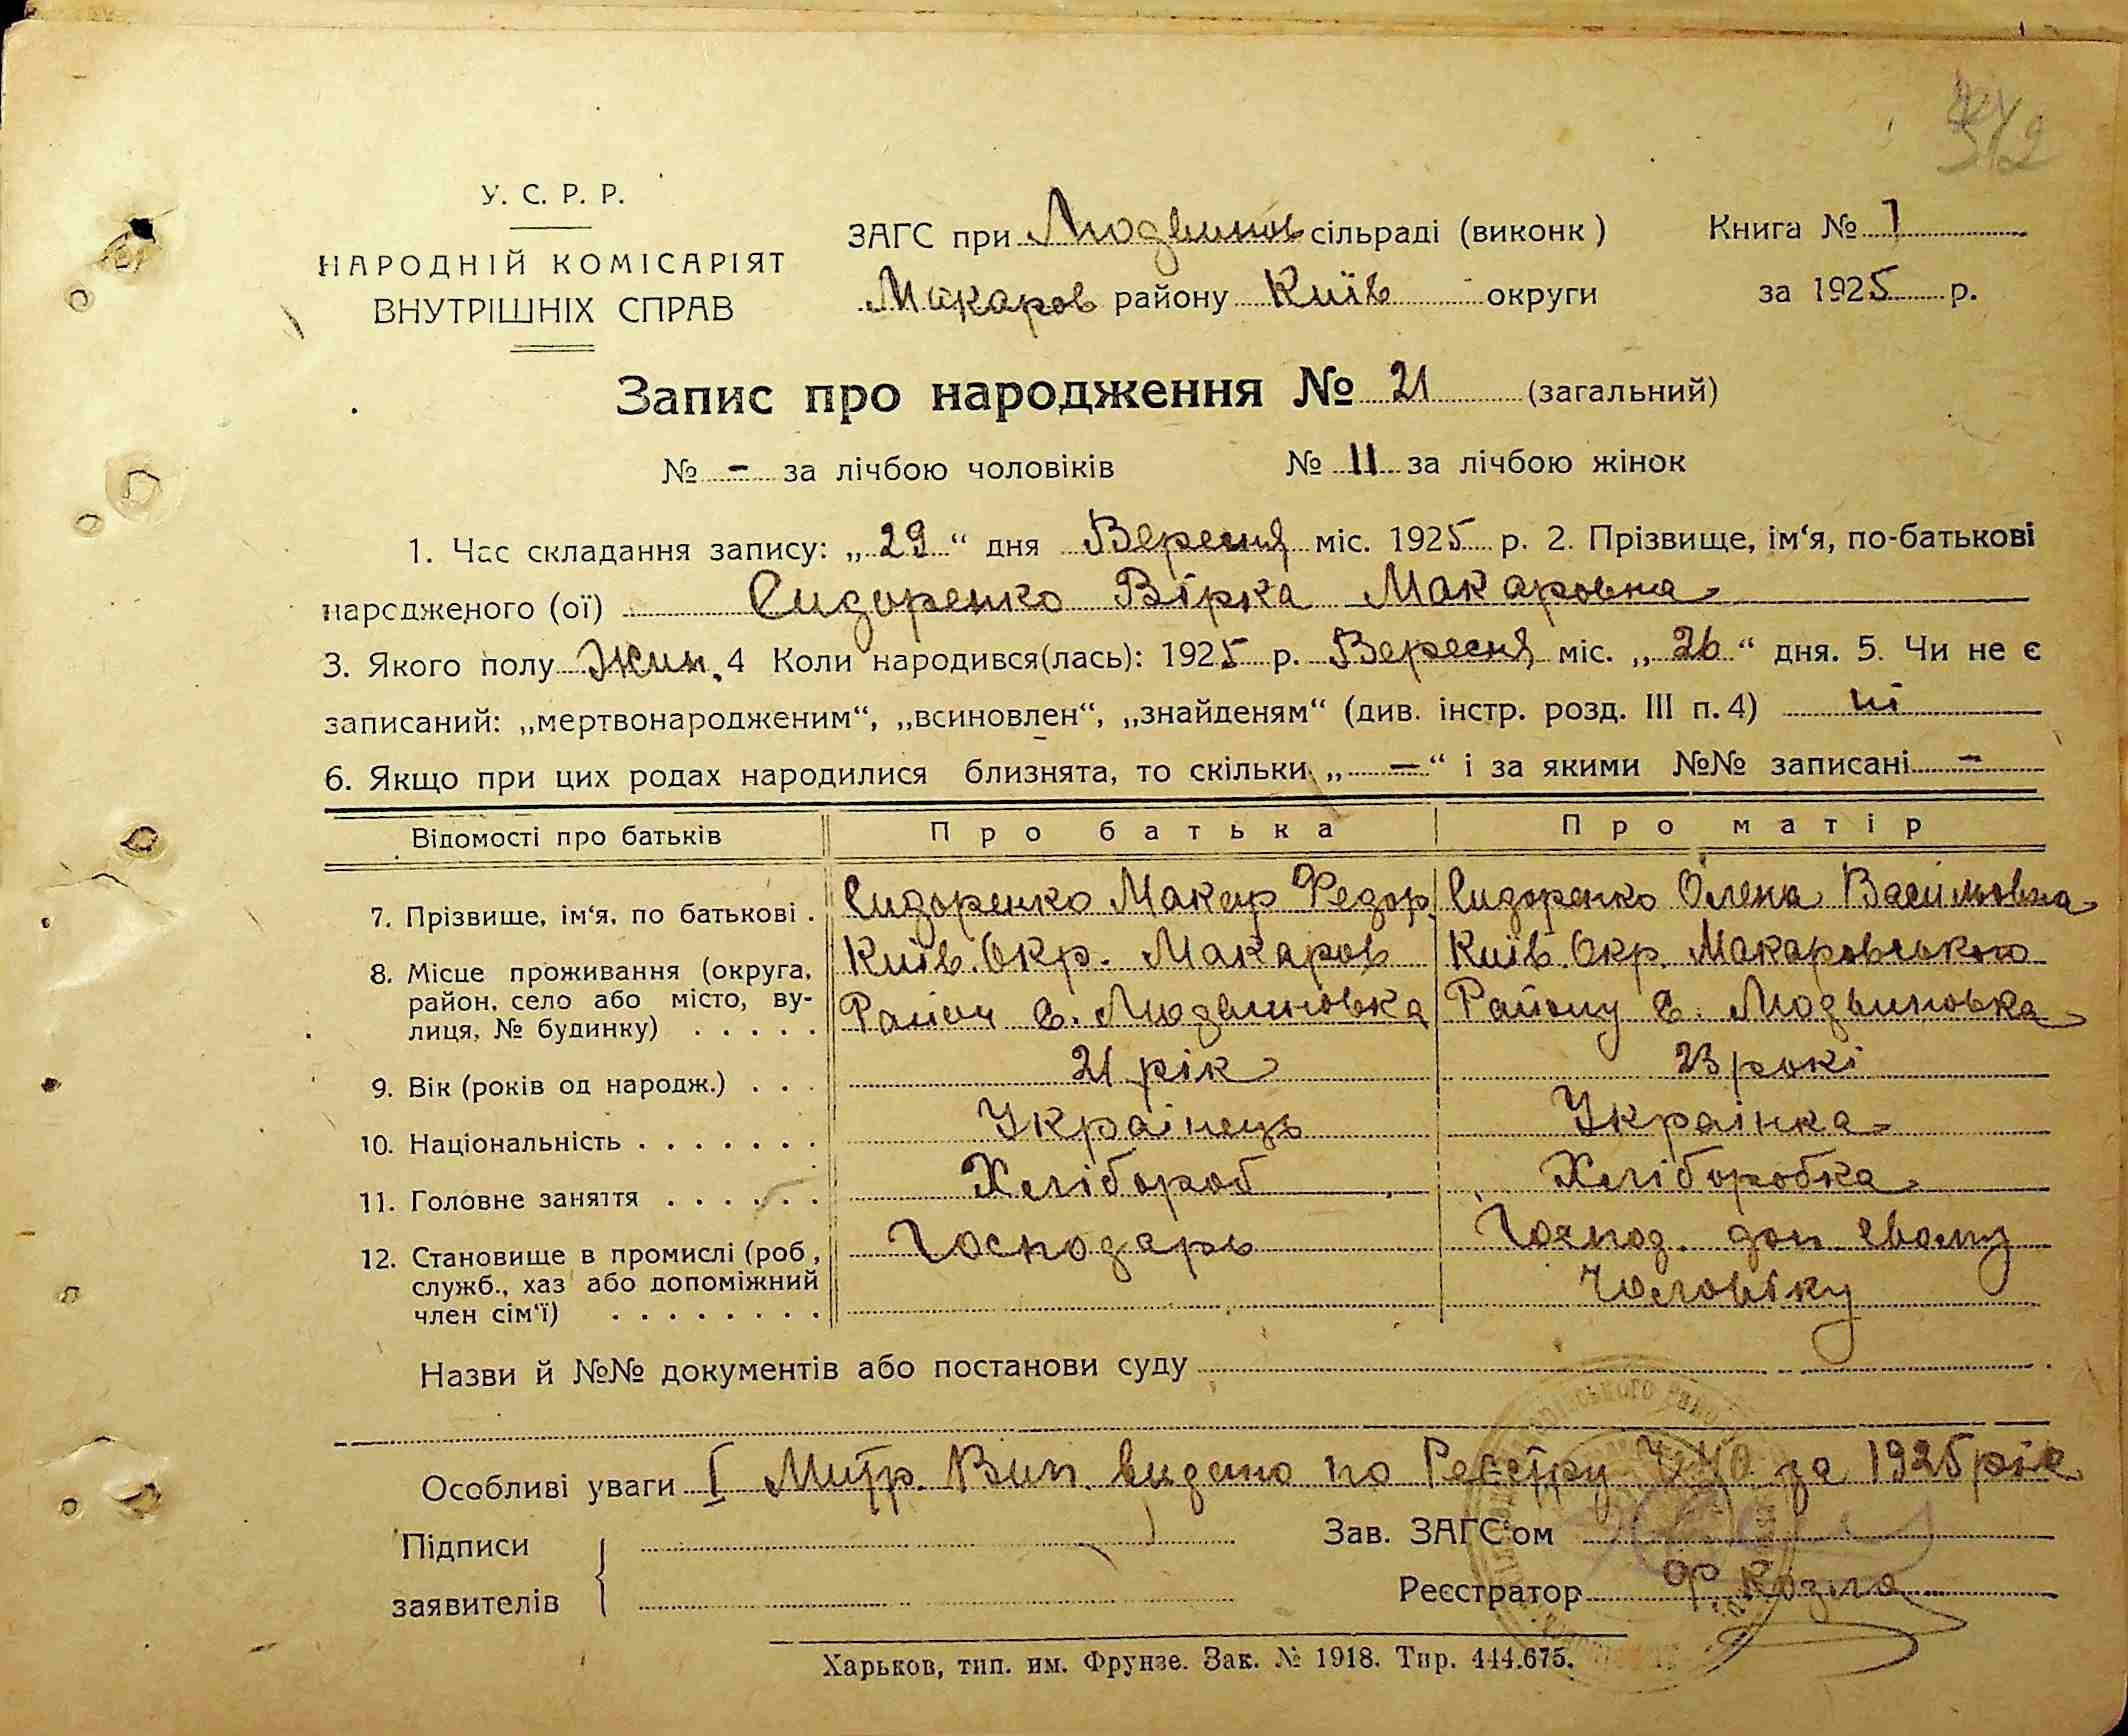 312
У. С. Р. Р.
НАРОДНІЙ КОМІСАРІЯТ
ВНУТРІШНІХ СПРАВ
ЗАГС при Людвинов сільраді (виконк )
Макаров району Київ округи
Книга № 1
за 1925 р.
Запис про народження № 21 (загальний)
№ - за лічбою чоловіків № 11 за лічбою жінок
1. Час складання запису: „ 29 “ дня Вересня міс. 1925 р. 2. Прізвище, ім‘я, по-батькові
народженого (ої) Сидоренко Вірка Макаровна
3. Якого полу Жин. 4 Коли народився(лась): 1925 р. Вересня міс. „ 26 “ дня. 5. Чи не є
записаний: „мертвонародженим“, „всиновлен“, „знайденям“ (див. інстр. розд. III п. 4) ні
6. Якщо при цих родах народилися близнята, то скільки „ — “ і за якими №№ записані -
Відомості про батьків Про батька Про матір
7. Прізвище, ім‘я, по батькові . Сидоренко Макар Федор. Сидоренко Олена Васильовна
8. Місце проживання (округа, Київ. Окр. Макаров Київ. Окр. Макаровського
район, село або місто, ву- Район с. Людвиновка Району с. Людвиновка
лиця, № будинку) . . . . .
9. Вік (років од народж.) . . . 21 рік 23 рокі
10. Національність . . . . . . . Украінець Украінка
11. Головне заняття . . . . . . Хлібороб Хліборобка
12. Становище в промислі (роб , Господарь Господ. доп. свому
служб., хаз або допоміжний Чоловіку
член сім‘ї) . . . . . . . .
Назви й №№ документів або постанови суду
Особливі уваги I Митр. Вип. видано по Реєстру за 1925 рік
Підписи
заявителів
Зав. ЗАГС‘ом
Реєстратор Ф Козло
Харьков, тип. им. Фрунзе. Зак. № 1918. Тир. 444.675.